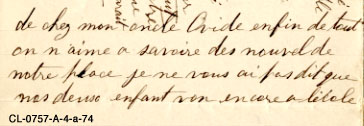 de chez mon oncle Ovide enfin de tout
on n'aime a savoire des nouvel de
notre place je ne vous ai pas dit que
nos deuse enfant von encore a lécole
CL-0757-A-4-a-74